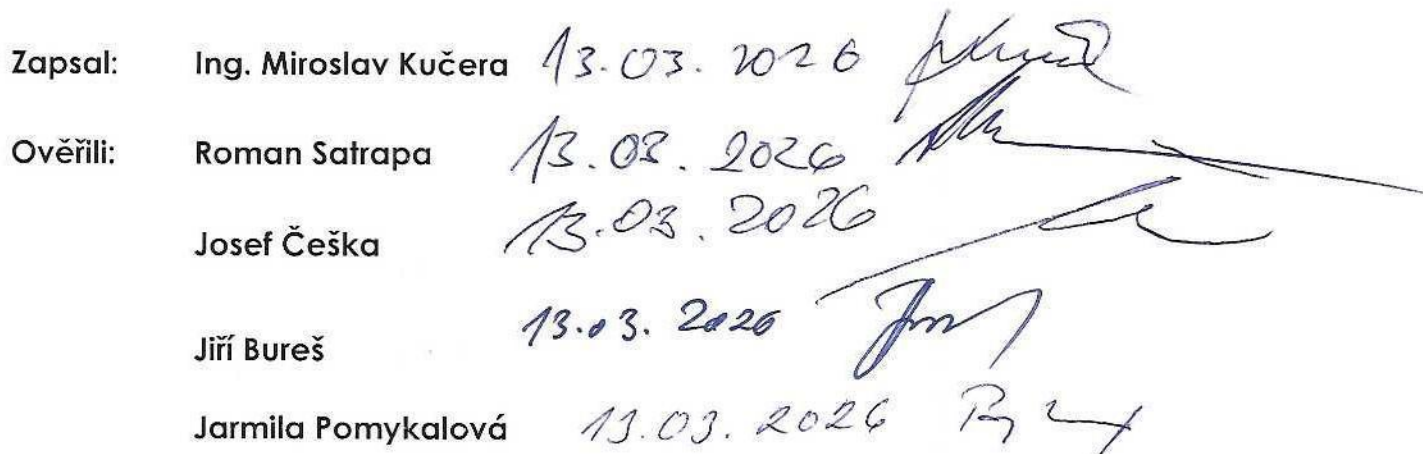 Zapsal: Ing. Miroslav Kučera 13.03.2026
Ověřili: Roman Satrapa 13.03.2026
Josef Češka 13.03.2026
Jiří Bureš 13.03.2026
Jarmila Pomykalová 13.03.2026